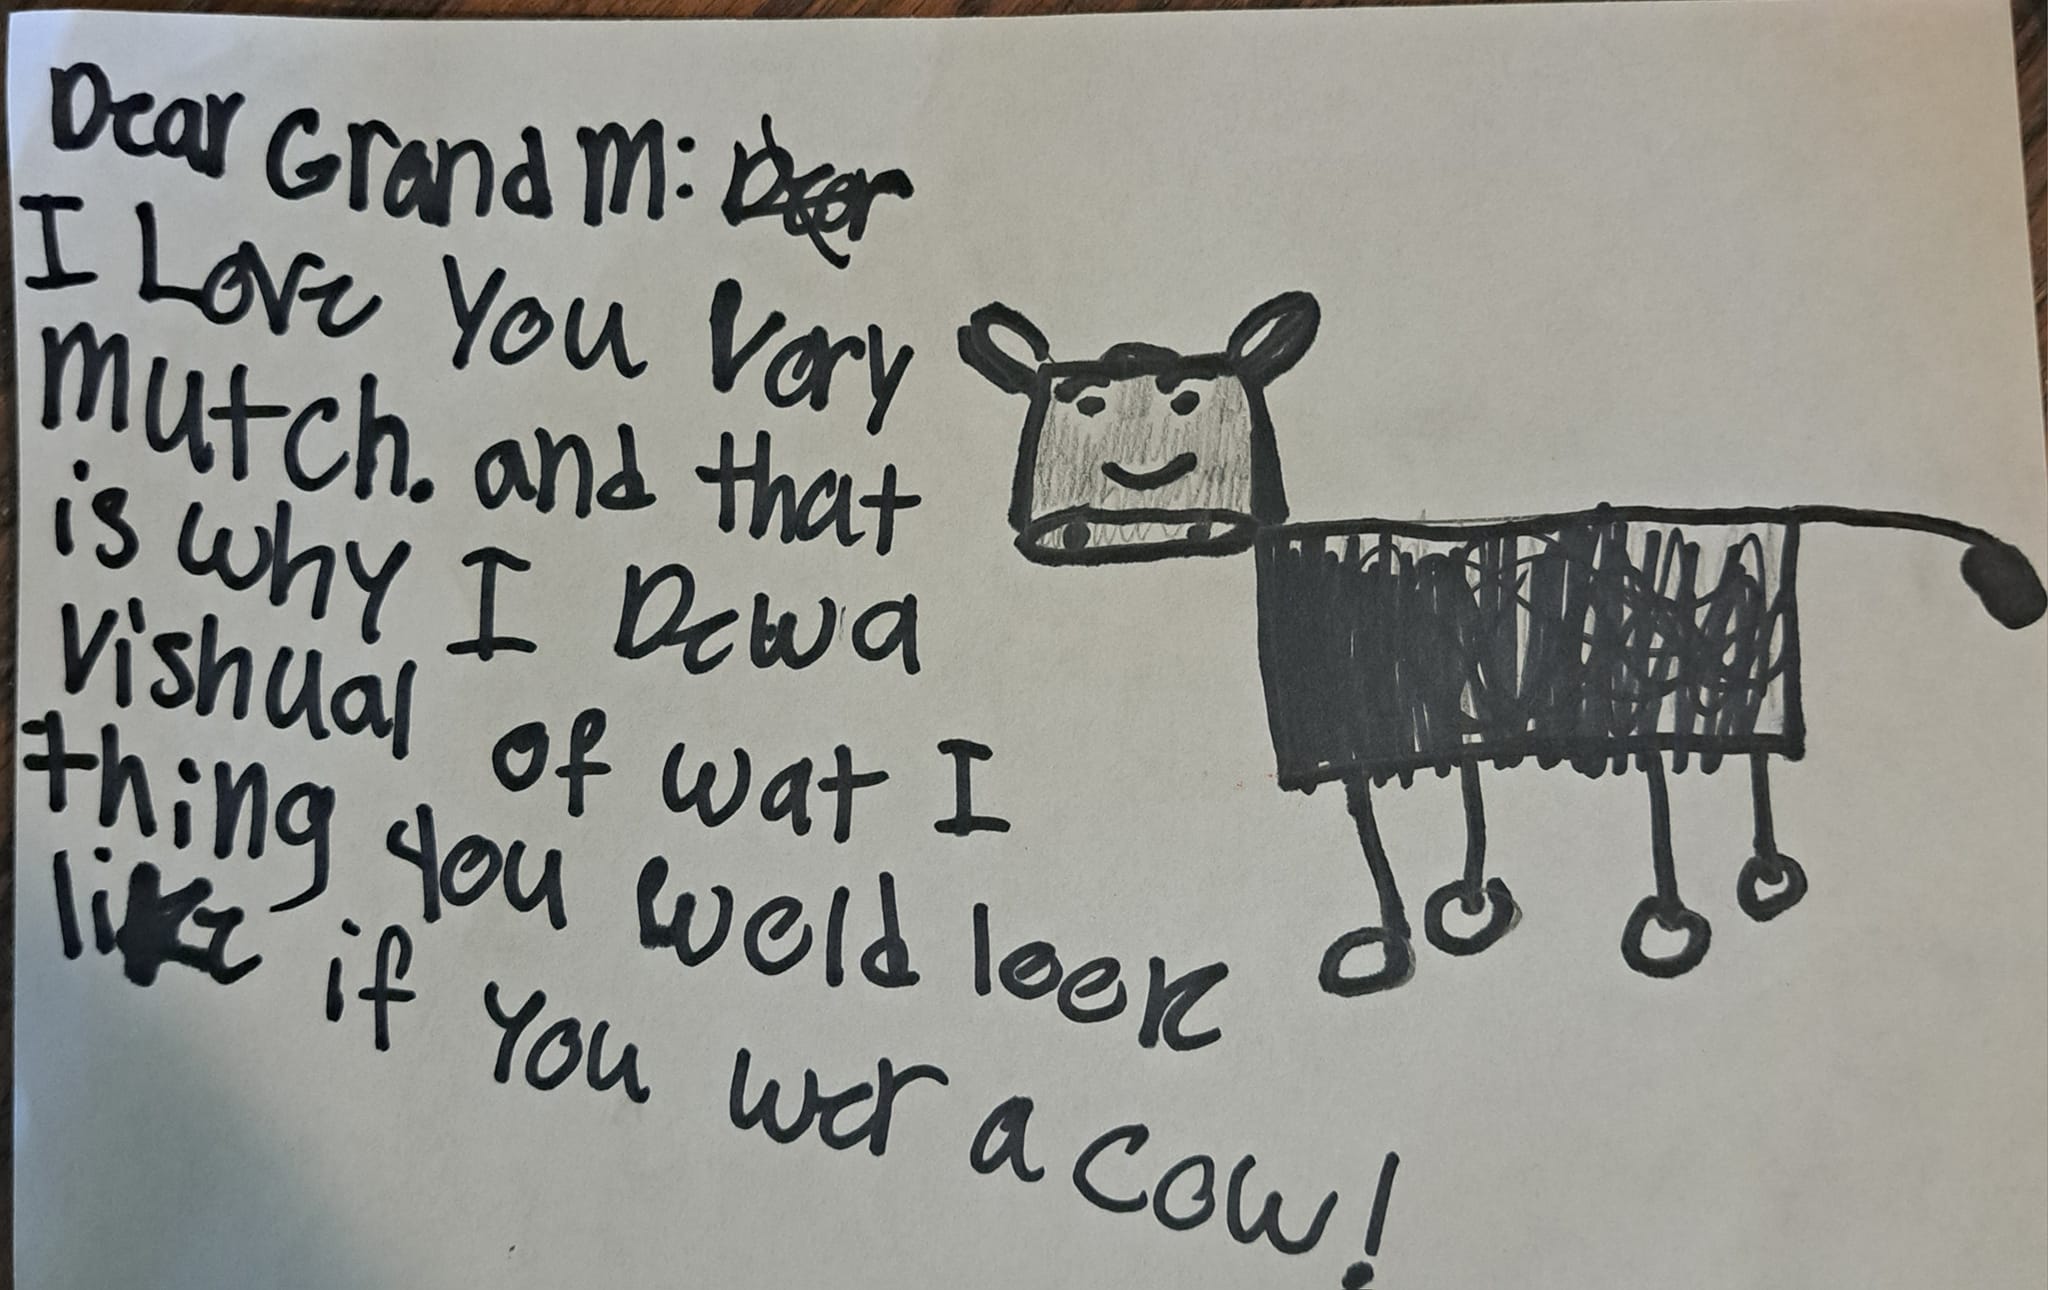 Dear Grand M:
I Love You Very
mutch. and that
is why I Dew a
Vishual of wat I
thing you weld look
like if You wer a cow!